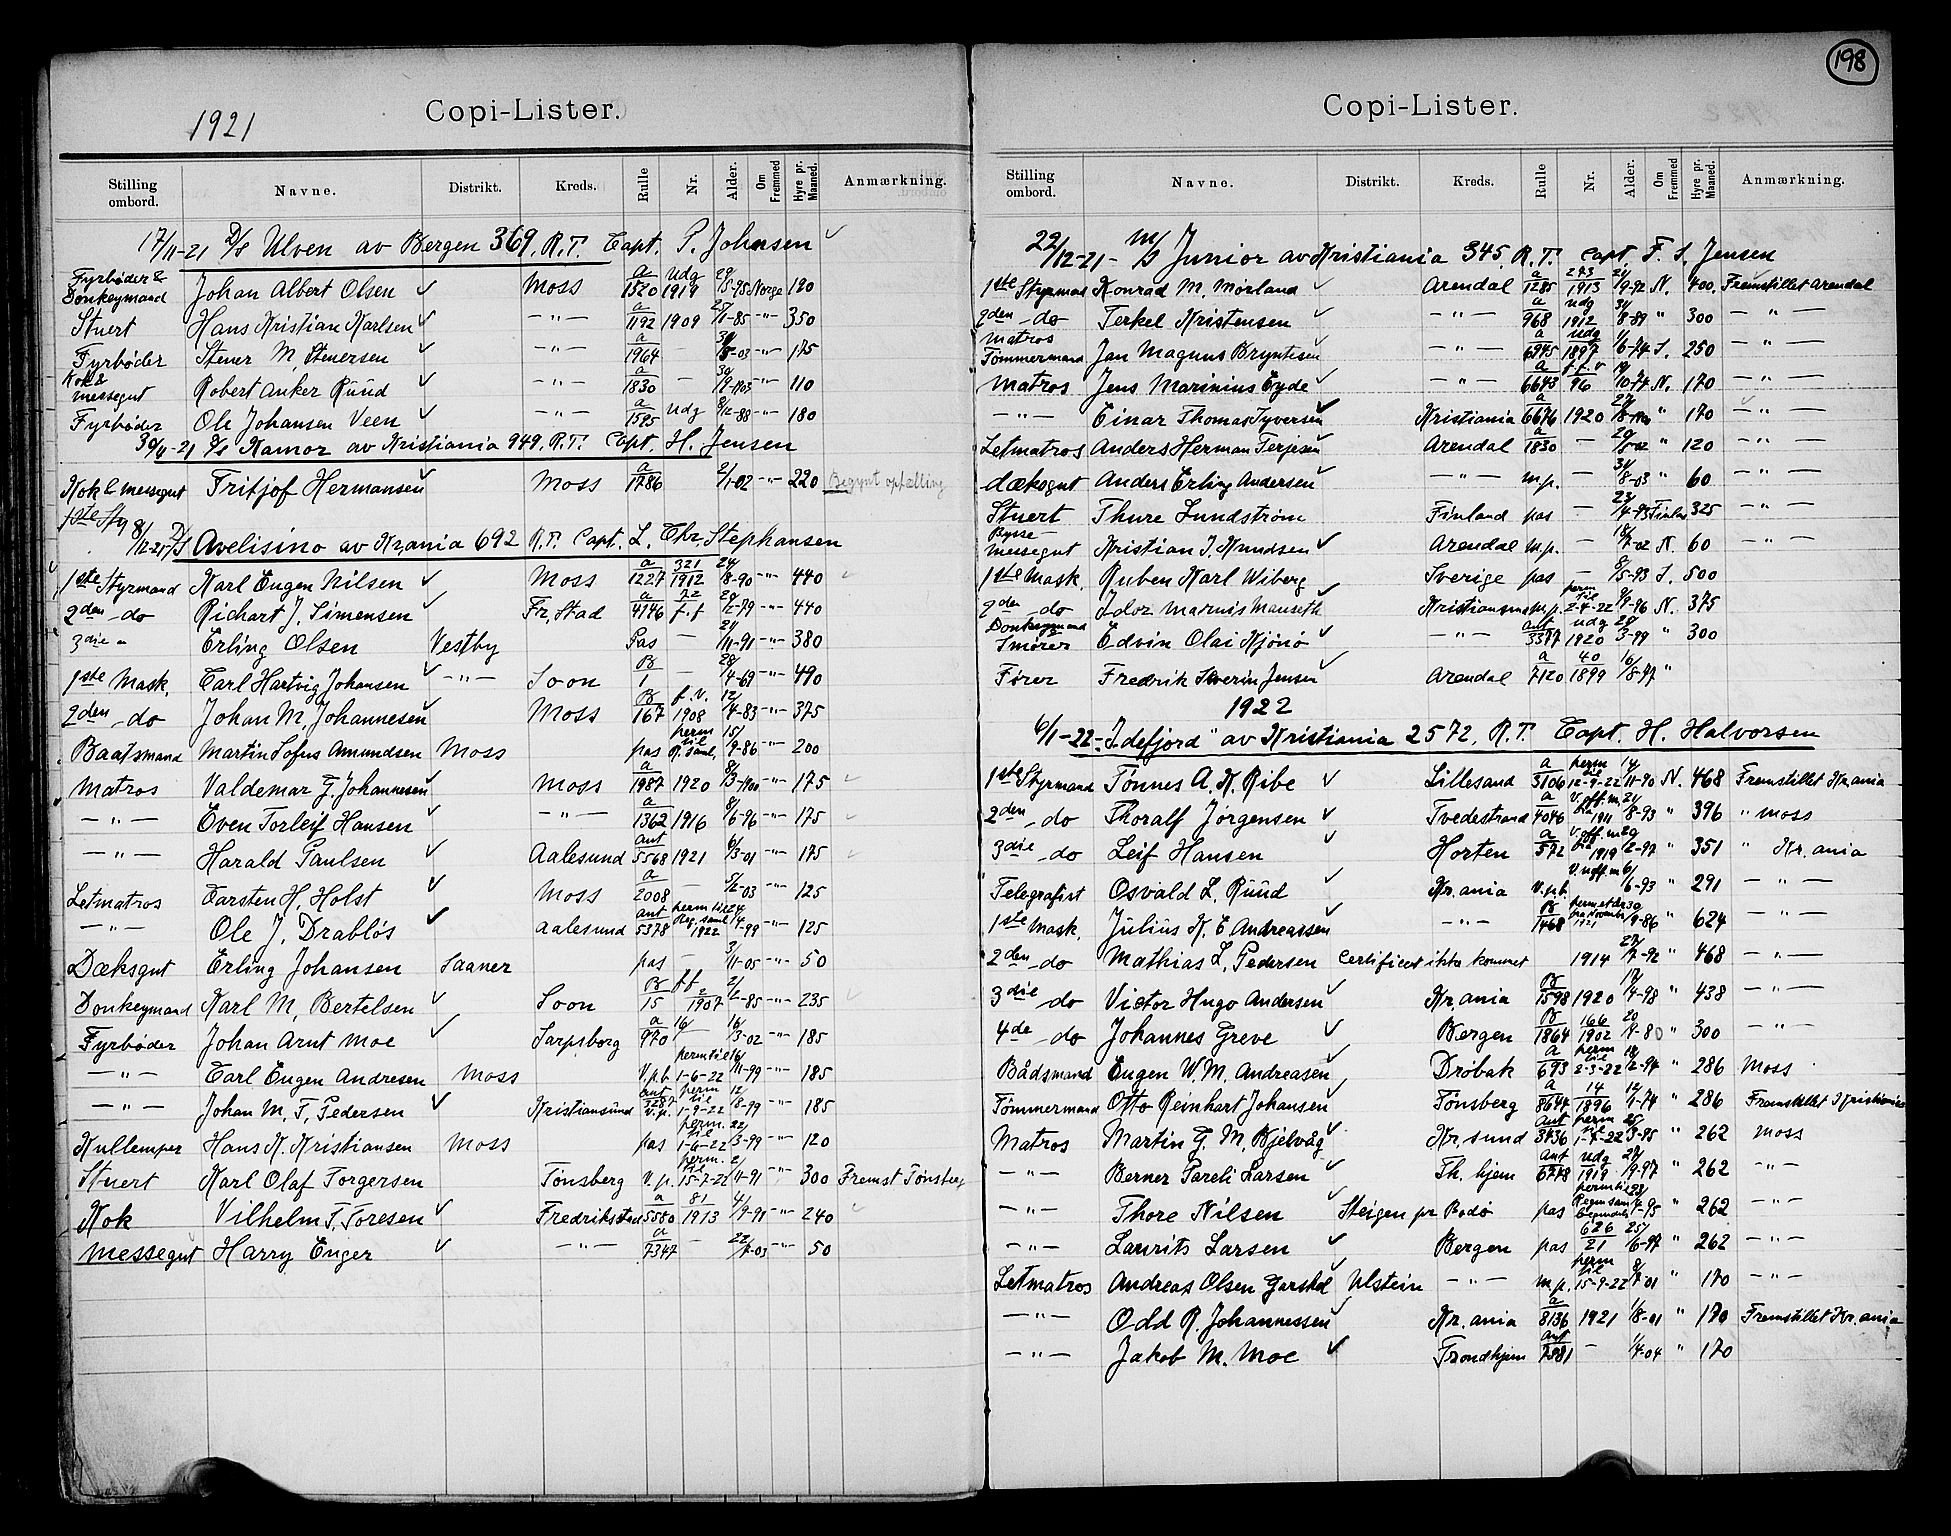 198
1921
Copi-Lister.
Stilling ombord. Navne. Distrikt. Kreds. Rulle Nr. Alder. Om Fremmed Hyre pr. Maaned. Anmærkning.
17/11-21 D/S Ulven av Bergen 369. R.T. Capt. P. Johnsen
Fyrbøder & Donkeymand Johan Albert Olsen Moss a/1520 udg 1919 29/5-95 Norge 190
Stuert Hans Kristian Karlsen -"- a/1192 1909 25/11-85 -"- 350
Fyrbøder Stener M. Stenersen -"- a/1964 -"- 175
Kok & messegut Robert Anker Ruud -"- a/1830 — 30/9-1903 -"- 110
Fyrbøder Ole Johansen Veen -"- a/1595 udg 8/12-88 -"- 180
30/11-21 D/S Kamor av Kristiania 949. R.T. Capt. H. Jensen
Kok & messegut Fritjof Hermansen Moss a/1786 2/1-02 -"- 220 Begynt optælling
1ste Sty
8/12-21 D/S Avelisino av Krania 692 R.T. Capt. L. Chr. Stephansen
1ste Styrmand Karl Eugen Nilsen Moss a/1227 321/1912 24/8-90 -"- 440
2den do Richart J. Simensen Fr,stad a/4146 72/f.f 29/12-79 -"- 440
3die " Erling Olsen Vestby Pas — 21/11-91 -"- 380
1ste Mask. Carl Hartvig Johansen -"- Soon B/1 — 28/4-69 -"- 490
2den do Johan M. Johannesen Moss B/167 f.v. 1908 12/4-83 -"- 375
Baatsmand Martin Sofus Amundsen Moss pas perm til R. Saml, 15/9-86 -"- 200
Matros Valdemar G. Johannesen Moss a/1987 1920 8/3-1900 -"- 175
-"- Even Torleif Hansen -"- a/1362 1916 8/6-96 -"- 175
-"- Harald Paulsen Aalesund ant/5568 1921 6/3-01 -"- 175
Letmatros Carsten H. Holst Moss a/2008 — 5/2-03 -"- 125
-"- Ole J. Drabløs Aalesund ant/5378 perm til Reg. saml 1922 24/4-99 -"- 125
Dæksgut Erling Johansen Saaner pas — 3/11-05 -"- 50
Donkeymand Karl M, Bertelsen Soon B/15 ff 2/1907 2/2-85 -"- 235
Fyrbøder Johan Arnt Moe Sarpsborg a/970 16 16/3-02 -"- 185
-"- Carl Eugen Andresen Moss V.p.b. perm til 1-6-22 16/11-99 -"- 185
-"- Johan M. F. Pedersen Kristiansund ant/3287 V.p. perm til 1-9-22 12/8-99 -"- 185
Kullemper Hans K. Kristiansen Moss pas perm. til 1-6-22 22/3-99 -"- 120
Stuert Karl Olaf Torgersen Tønsberg V.p. perm. til 15-7-22 2/4-91 -"- 300 Fremst Tønsberg
Kok Vilhelm T, Toresen Fredriksstad a/5580 81/1913 4/9-91 -"- 240
Messegut Harry Enger -"- a/7347 — 22/7-03 -"- 50
Copi-Lister.
Stilling ombord. Navne. Distrikt. Kreds. Rulle Nr. Alder. Om Fremmed Hyre pr. Maaned. Anmærkning.
22/12-21 - M/S Junior av Kristiania 345, R.T. Capt. F. S. Jensen
1ste Styrmand Konrad M. Mørland Arendal a/1285 293/1913 21/9-92 N. 400. Fremstillet Arendal
2den do Terkel Kristensen -"- a/968 udg 1912 31/8-89 " 300 -"-
Matros Tømmermand Jan Magnus Bryntesen -"- a/6945 udg 1897 11/6-74 S. 250 -"-
Matros Jens Marinius Eyde -"- a/6643 f.f.v 96 19/10-74 N. 170 -"-
-"- Einar Thomas Syversen Kristiania a/6676 1920 " 170 -"-
Letmatros Anders Herman Terjesen Arendal a/1830 — 20/8-02 " 120 -"-
Dæksgut Anders Erling Andersen -"- m.p. — 31/8-03 " 60 -"-
Stuert Thure Lundström Finland pas — 23/4-93 Finlan 325 -"-
Bysse- messegut Kristian J. Knudsen Arendal m.p. — 18/7-02 N. 60 -"-
1ste Mask. Ruben Karl Wiberg Sverige pas — 8/5-93 S. 500 -"-
2den do Idor Marius Manseth Kristiansund m.p. perm til 2-4-22 9/9-96 N. 375 -"-
Donkeymand Smører Edvin Olai Kjönö -"- ant/3377 udg 1920 28/3-99 " 300 -"-
Fører Fredrik Severin Jensen Arendal a/7120 40/1899 16/8-77 "
1922
6/1-22 - "Idefjord" av Kristiania 2572, R.T. Capt. H. Halvorsen
1ste Styrmand Tönnes A. K. Ribe Lillesand a/3106 perm til 12-9-22 14/11-90 N. 468 Fremstillet Kr.ania
2den do Thoralf Jørgensen Tvedestrand a/4046 V. off. m. fra 1911 21/8-93 " 396 " Moss
3die do Leif Hansen Horten a/572 V. off. m. fra 1919 29/2-97 " 351 " Kr.ania
Telegrafist Osvald L. Ruud Kr.ania V.p.b. V. uoff. m 6/6-93 " 291 -"-
1ste Mask. Julius K. E Andreassen -"- B/1468 perm et år fra November 1921 30/9-86 " 624 -"-
2den do Mathias L. Pedersen Certificet ikke kommet 1914 27/7-92 " 468 -"-
3die do Victor Hugo Andersen Kr.ania B/1598 1920 17/4-98 " 438 -"-
4de do Johannes Greve Bergen B/1864 166/1902 20/4-80 " 300 -"-
Bådsmand Eugen W. M. Andreasen Drøbak a/693 perm til 2-3-22 18/2-94 " 286 Moss
Tømmermand Otto Reinhart Johansen Tönsberg a/8647 14/1896 12/1-74 " 286 Fremstillet Kristiania
Matros Martin G. M. Bjelvåg Kr.sund ant/3436 perm til 1-4-22 25/3-95 " 262 Moss
-"- Berner Pareli Larsen Th.hjem ant/6778 udg 1919 27/9-97 " 262 -"-
-"- Thore Nilsen Steigen pr Bodø pas perm til 23/4-95 " 262 -"-
-"- Laurits Larsen Bergen pas 626/21 25/6-97 " 262 -"-
Letmatros Andreas Olsen Garshol Ulstein -"- m.p. perm til 15-9-22 8/7-01 " 170 -"-
-"- Odd R. Johannessen Kr.ania a/8136 1921 1/8-01 " 170 Fremstillet Kr.ania
-"- Jakob M. Moe Trondhjem ant/7581 — 1/4-04 " 170